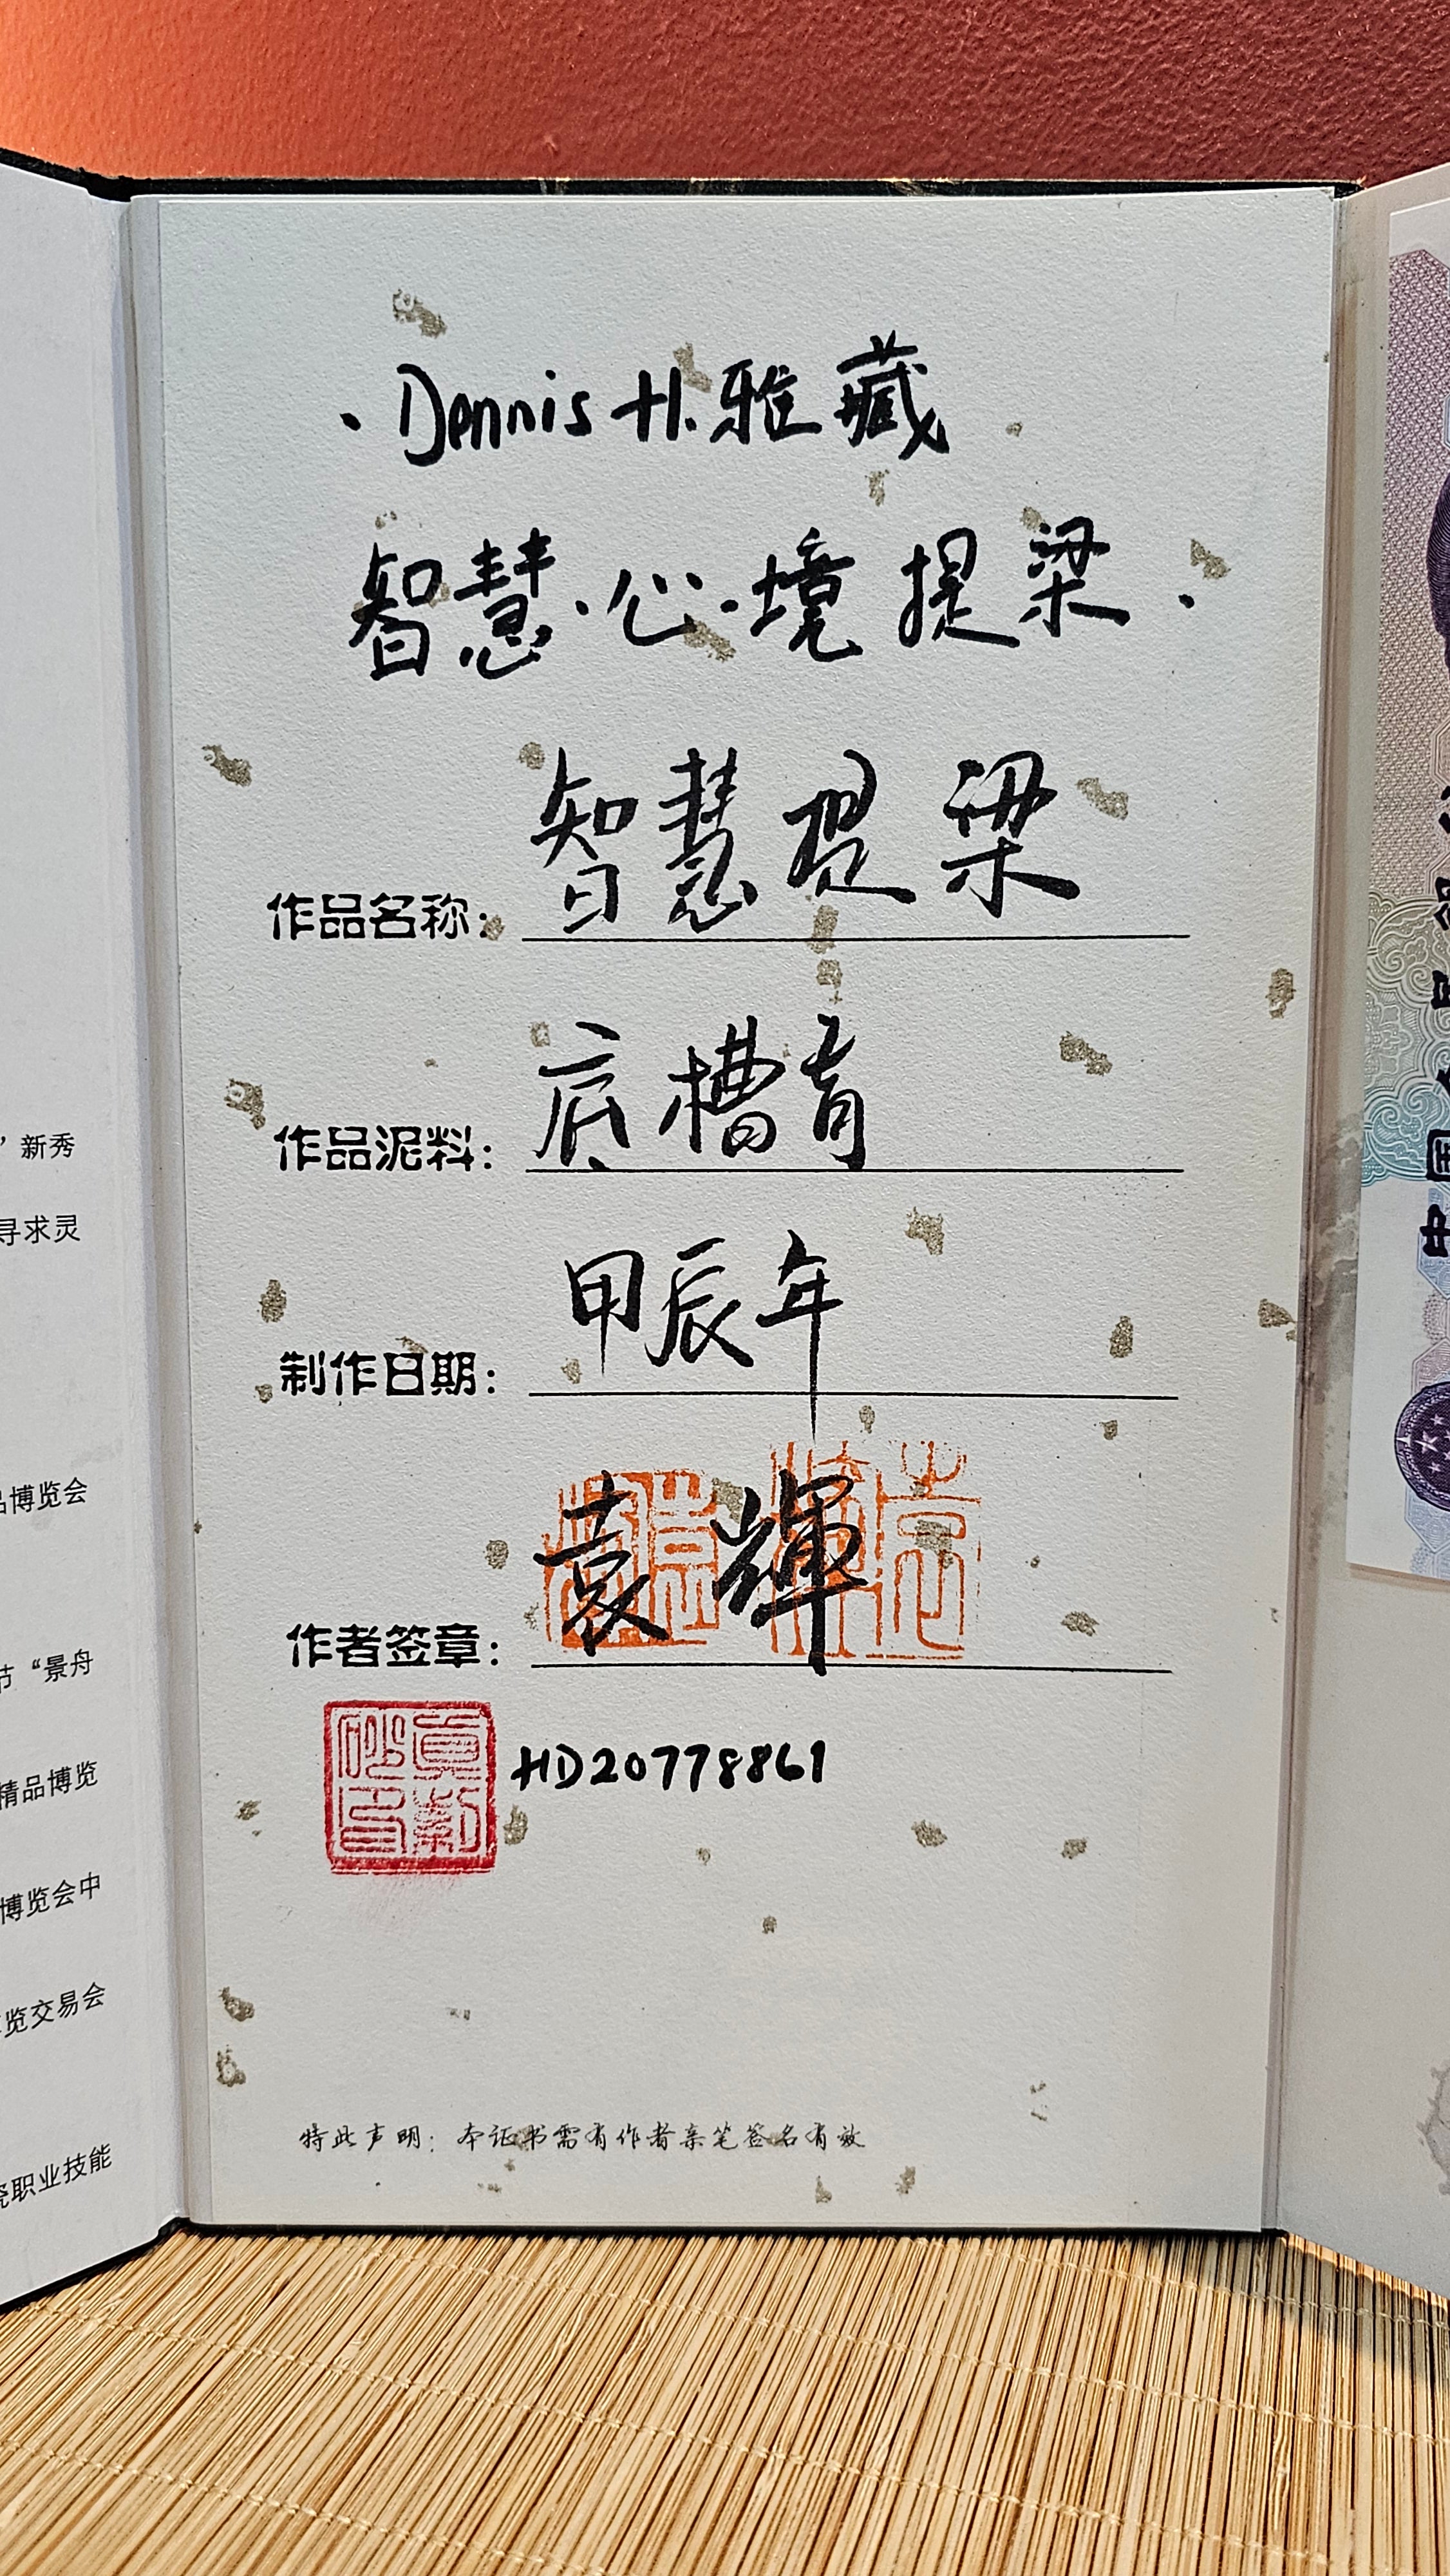 Dennis H. 雅藏
智慧·心·境提梁
作品名称：智慧提梁
作品泥料：底槽青
制作日期：甲辰年
作者签章：袁輝
HD20778861
特此声明：本证书需有作者亲笔签名有效
新秀
寻求灵
品博览会
节“景舟
精品博览
博览会中
览交易会
瓷职业技能
中国